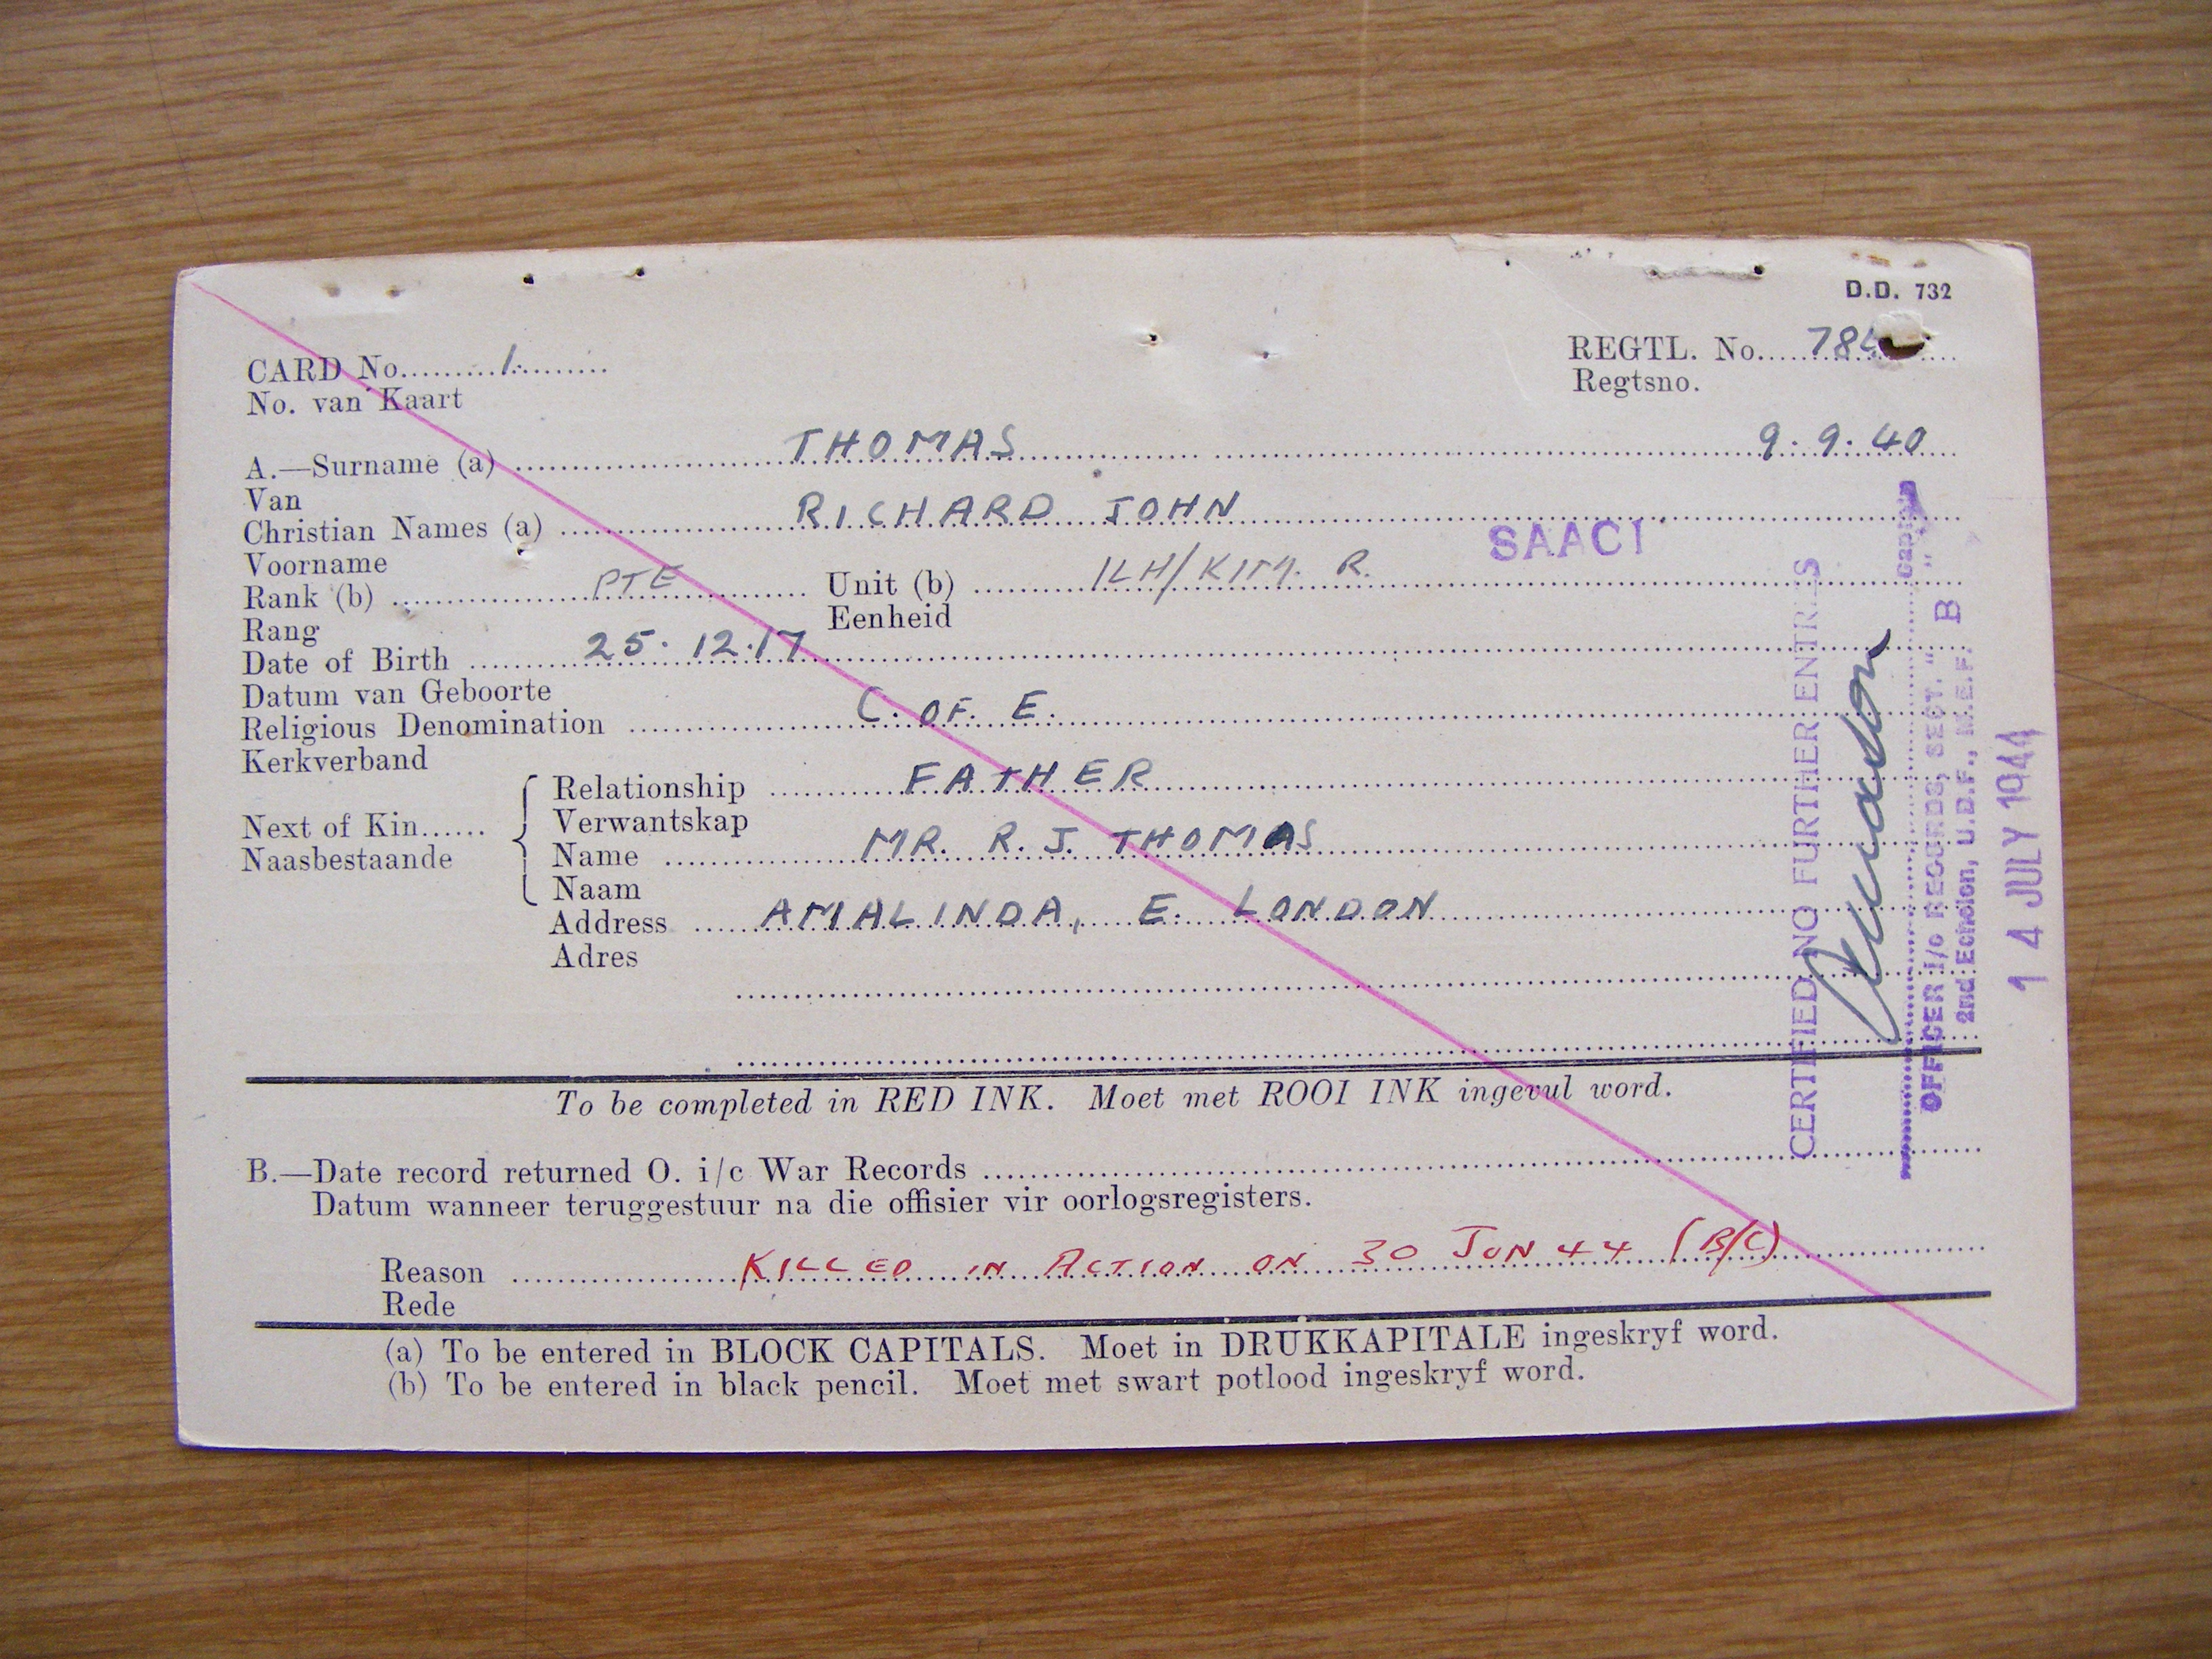 D.D. 732
CARD No......... 1 .........
No. van Kaart
REGTL. No..... 784
Regtsno.
A.—Surname (a) THOMAS 9.9.40
Van
Christian Names (a) RICHARD JOHN
Voorname
SAACI
Rank (b) PTE Unit (b) ILH/KIM. R.
Rang Eenheid
Date of Birth 25.12.17
Datum van Geboorte
Religious Denomination C. OF. E.
Kerkverband
Next of Kin......
Naasbestaande
Relationship FATHER
Verwantskap
Name MR. R. J. THOMAS
Naam
Address AMALINDA, E. LONDON
Adres
To be completed in RED INK. Moet met ROOI INK ingevul word.
B.—Date record returned O. i/c War Records
Datum wanneer teruggestuur na die offisier vir oorlogsregisters.
Reason KILLED IN ACTION ON 30 JUN 44 (B/C)
Rede
(a) To be entered in BLOCK CAPITALS. Moet in DRUKKAPITALE ingeskryf word.
(b) To be entered in black pencil. Moet met swart potlood ingeskryf word.
CERTIFIED NO FURTHER ENTRIES
OFFICER i/c RECORDS, SECT. " B "
2nd Echelon, U.D.F., M.E.F.
14 JULY 1944